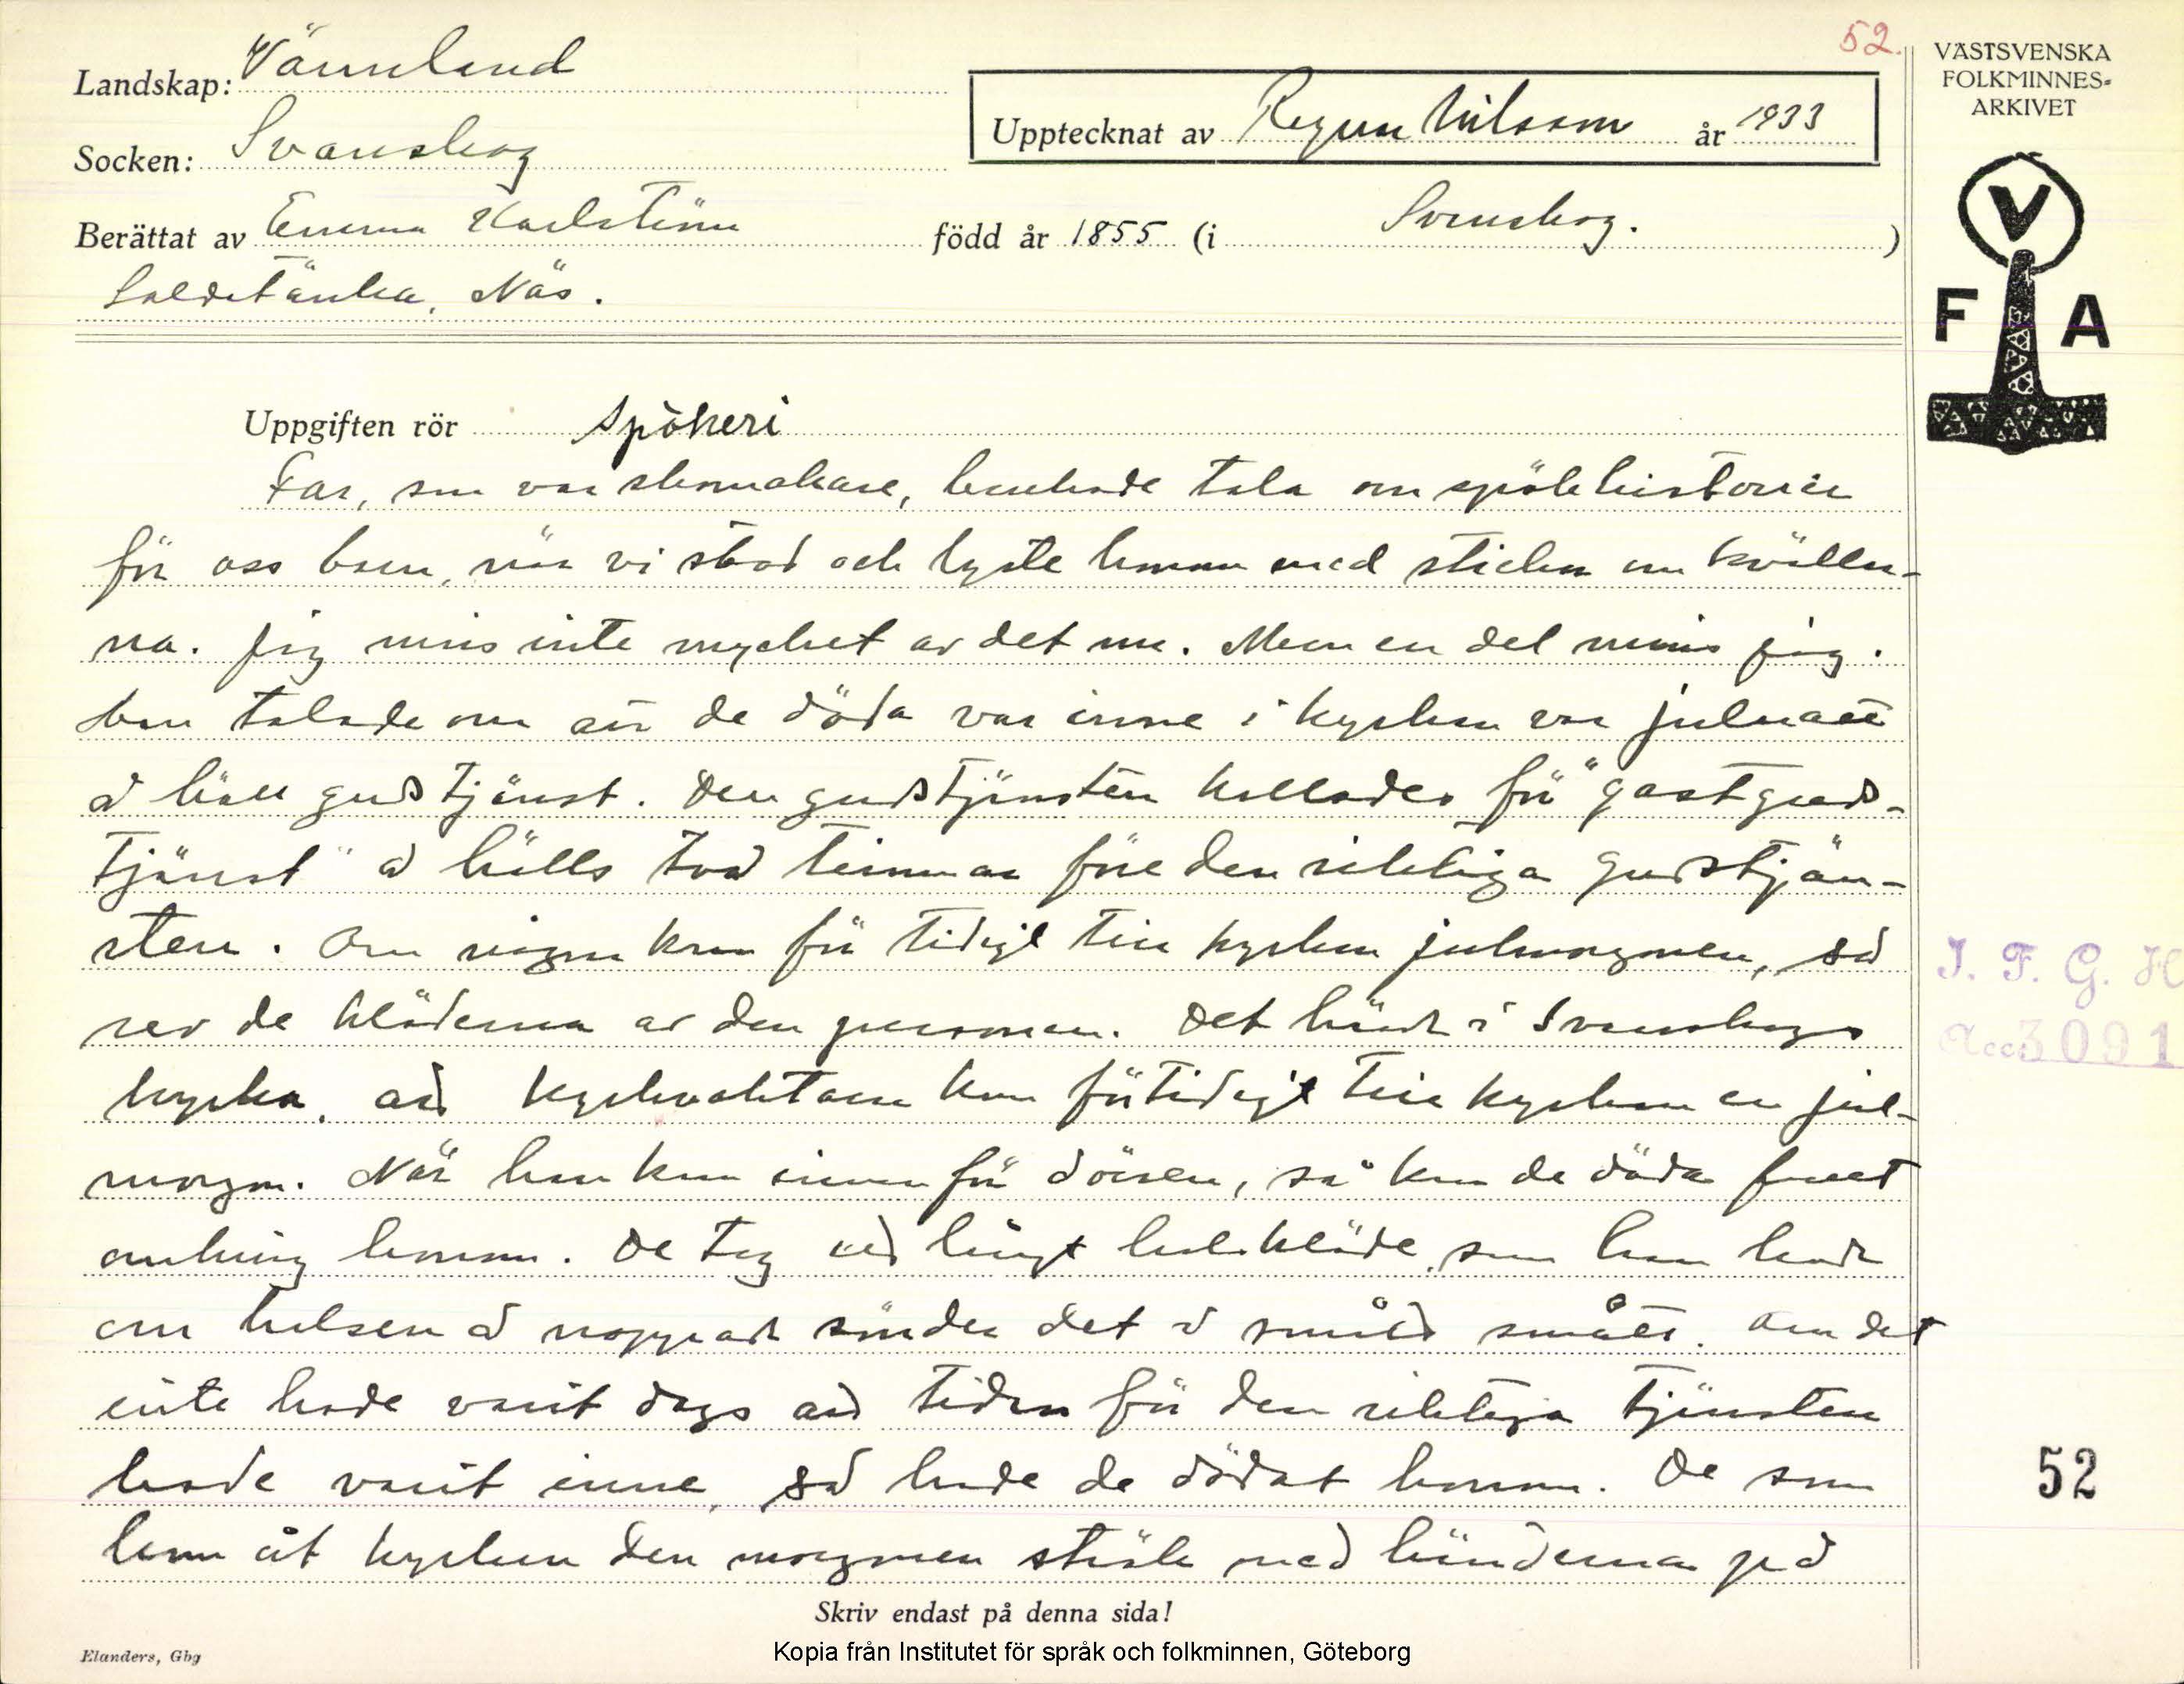 52.
VÄSTSVENSKA
FOLKMINNES-
ARKIVET
Landskap: Värmland
Upptecknat av Ragnar Nilsson år 1933
Socken: Svanskog
Berättat av Emma Karlström född år 1855 (i Svanskog.)
Soldatänka, Näs.
V
F A
Uppgiften rör Spökeri
Far, som var skomakare, brukade tala om spökhistorier
för oss barn, när vi stod och lyste honom med stickor om kvällar-
na. Jag mins inte mycket av det nu. Men en del minns jag.
han talade om att de döda var inne i kyrkan var julnatt
å höll gudstjänst. Den gudstjänsten kallades för "gastguds-
tjänst" å hölls två timmar före den riktiga gudstjän-
sten. Om någon kom för tidigt till kyrkan julmorgonen, så
rev de kläderna av den personen. Det hände i Svanskogs
kyrka, att kyrkvaktaren kom för tidigt till kyrkan en jul-
morgon. När han kom innanför dörren, så kom de döda faret
omkring honom. De tog ett långt halskläde, som han hade
om halsen å noppade sönder det i smått smått. Om det
inte hade varit dags att tiden för den riktiga tjänsten
hade varit inne, så hade de dödat honom. De som
kom åt kyrkan den morgonen strök med händerna på
Skriv endast på denna sida!
Elanders, Gbg
Kopia från Institutet för språk och folkminnen, Göteborg
I. F. G. H
Acc. 3091
52